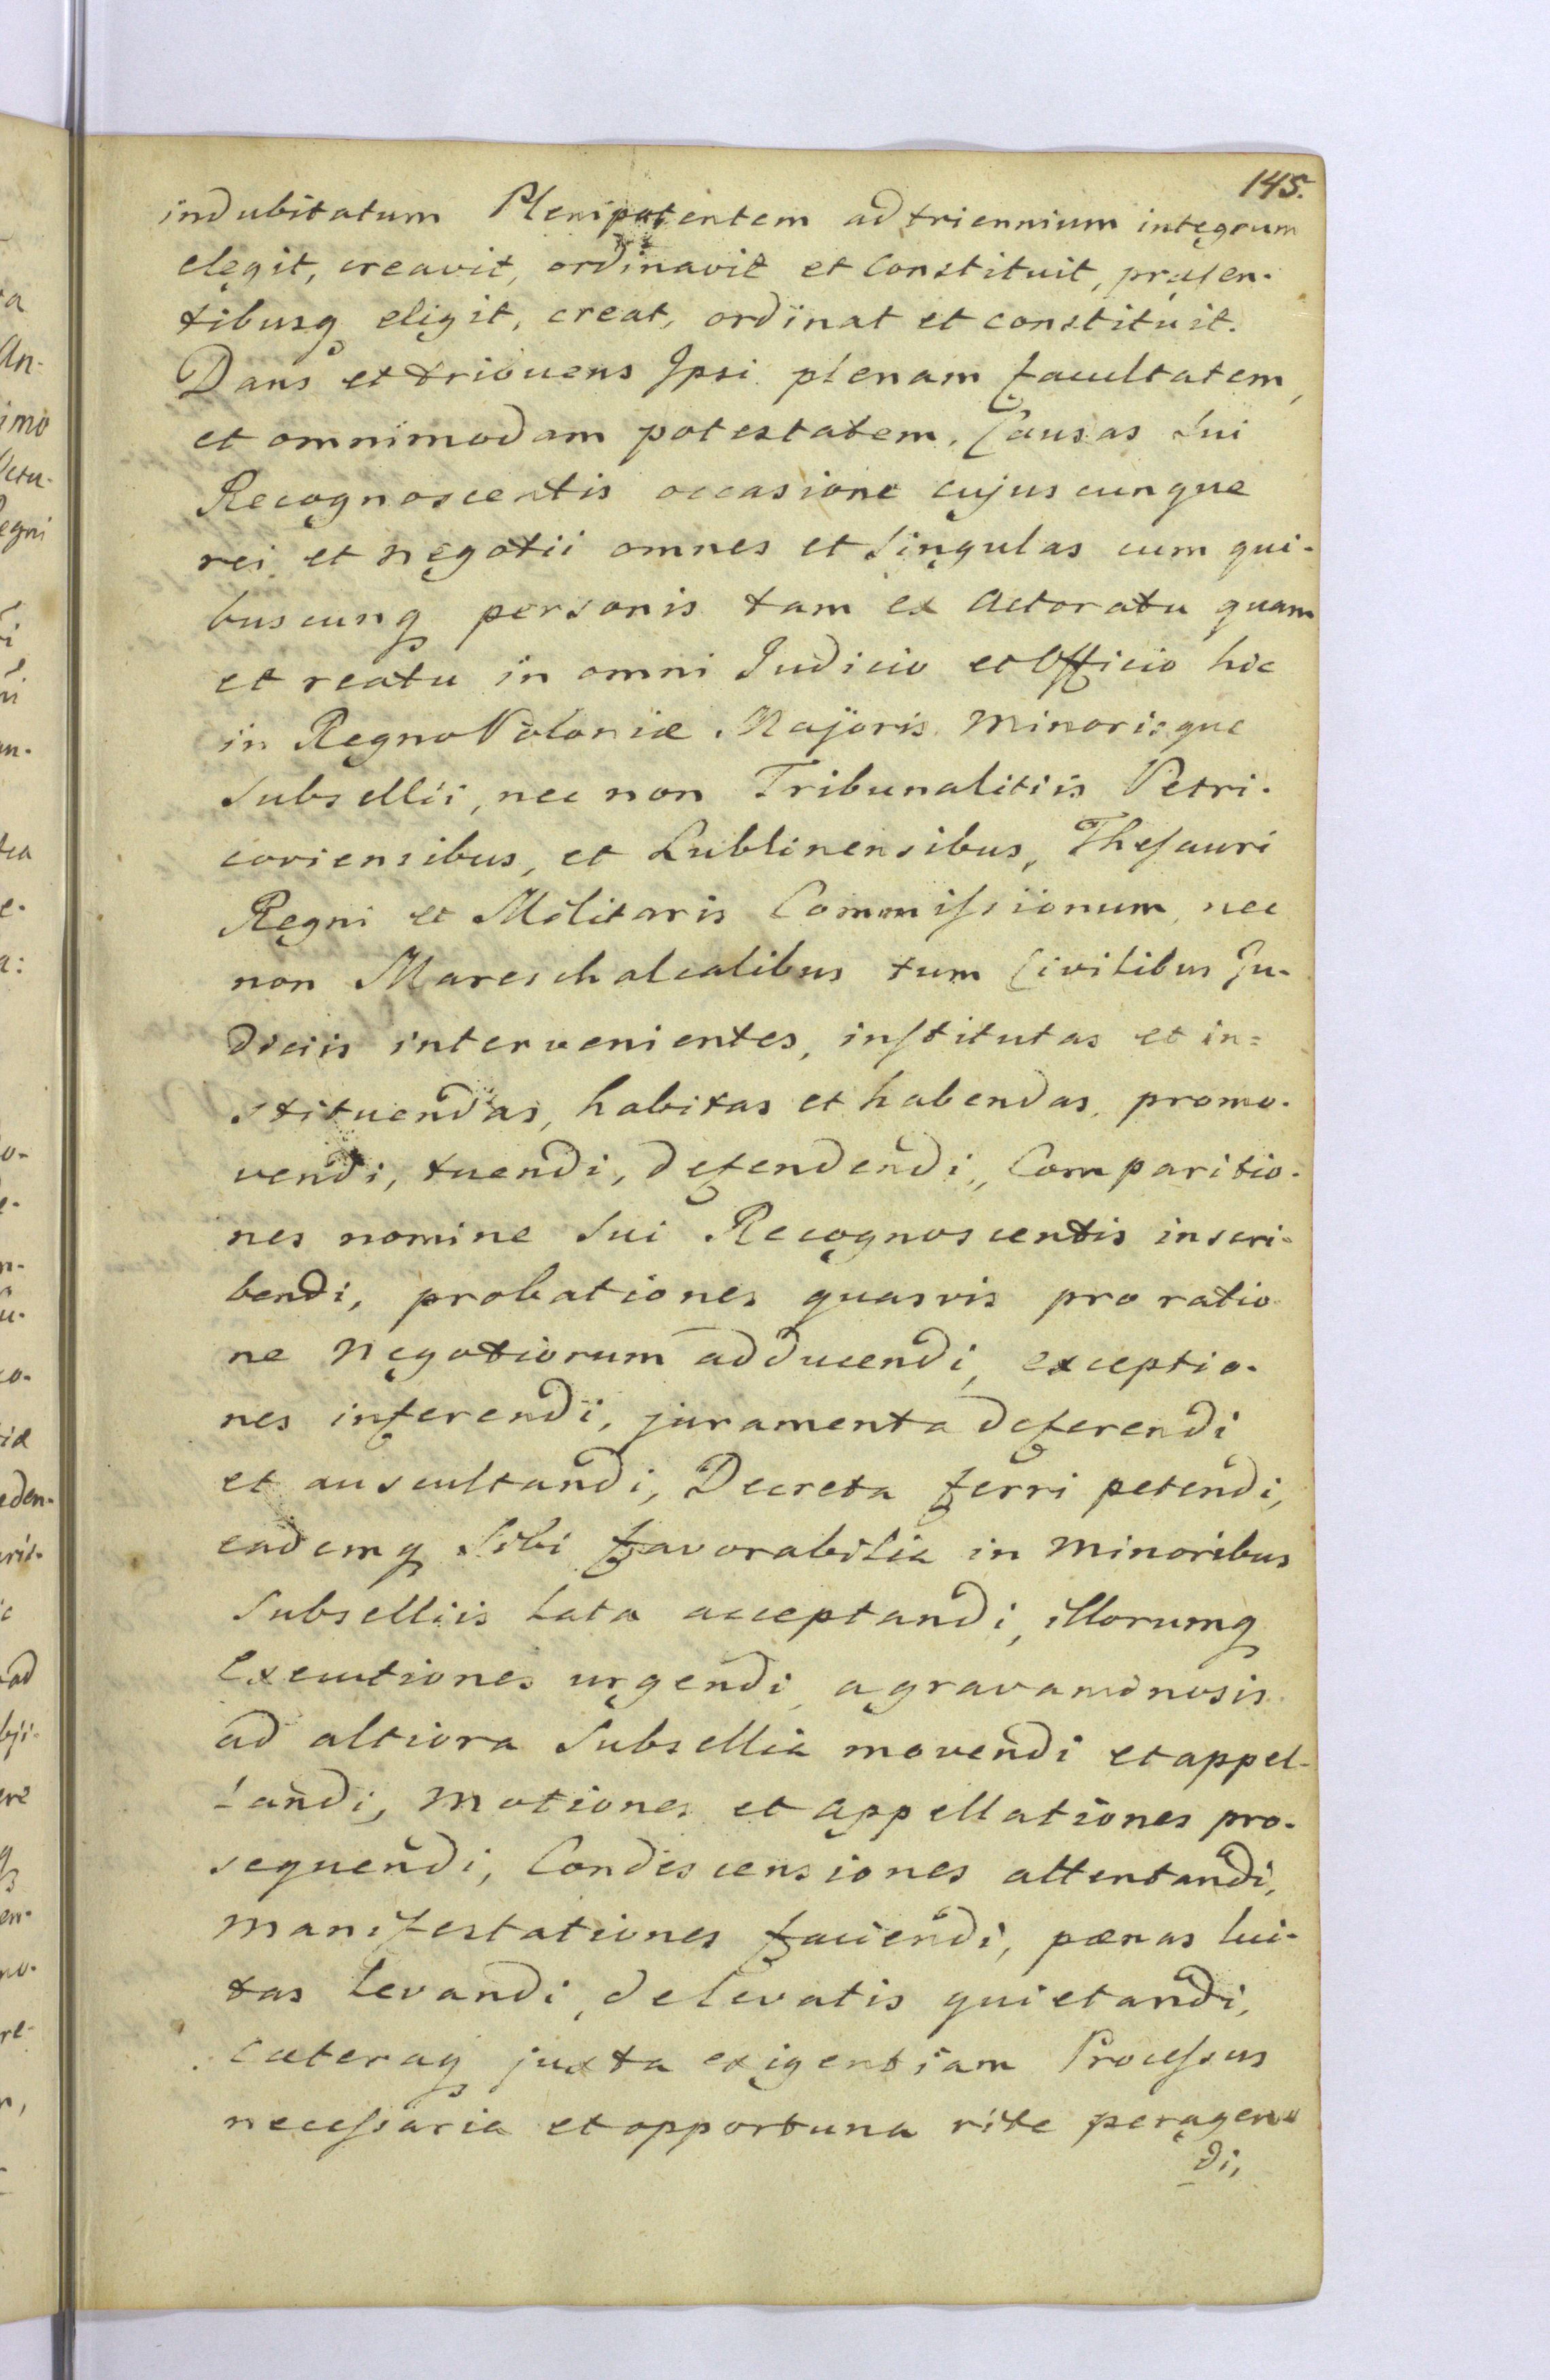 145.
indubitatum Plenipotentem ad triennium integrum
elegit, creavit, ordinavit et Constituit, præsen-
tibusq eligit, creat, ordinat et constituit.
Dans et tribuens Ipsi plenam facultatem,
et omnimodam potestatem, Causas Sui
Recognoscentis occasione cujuscunque
rei et negotii omnes et Singulas cum qui-
buscunq personis tam ex Actoratu quam
et reatu in omni Judicio et Officio hic
in Regno Poloniæ Majoris Minorisque
Subsellii, nec non Tribunalitiis Petri-
coviensibus, et Lublinensibus, Thesauri
Regni et Militaris Commissionum, nec
non Mareschalcalibus tum Civilibus Ju-
diciis intervenientes, institutas et in=
stituendas, habitas et habendas, promo-
vendi, tuendi, defendendi, Comparitio-
nes nomine Sui Recognoscentis inscri-
bendi, probationes quasvis pro ratio
ne Negotiorum adducendi, exceptio-
nes inferendi, juramenta deferendi
et auscultandi, Decreta ferri petendi,
eademq Sibi favorabilia in Minoribus
Subselliis Lata acceptandi, illorumq
Executiones urgendi, agravaminosis
ad altiora Subsellia movendi et appel-
landi, Motiones et Appellationes pro-
sequendi, Condescensiones attentandi,
Manifestationes faciendi, pænas lui-
tas Levandi, de levatis quietandi,
Cæteraq juxta exigentiam Processus
necessaria et opportuna rite peragen-
di,